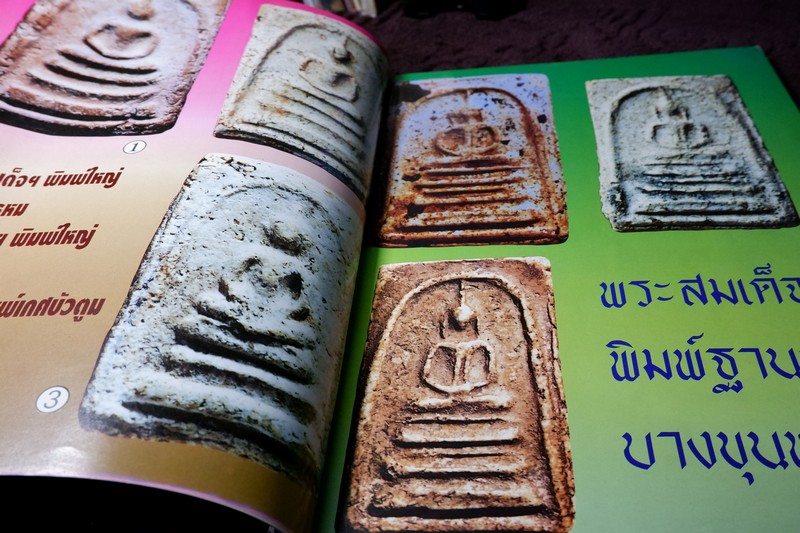 ①
พิมพ์ใหญ่
พิมพ์ใหญ่
เกศบัวตูม
③
พระสมเด็จ
พิมพ์ฐาน
บางขุน